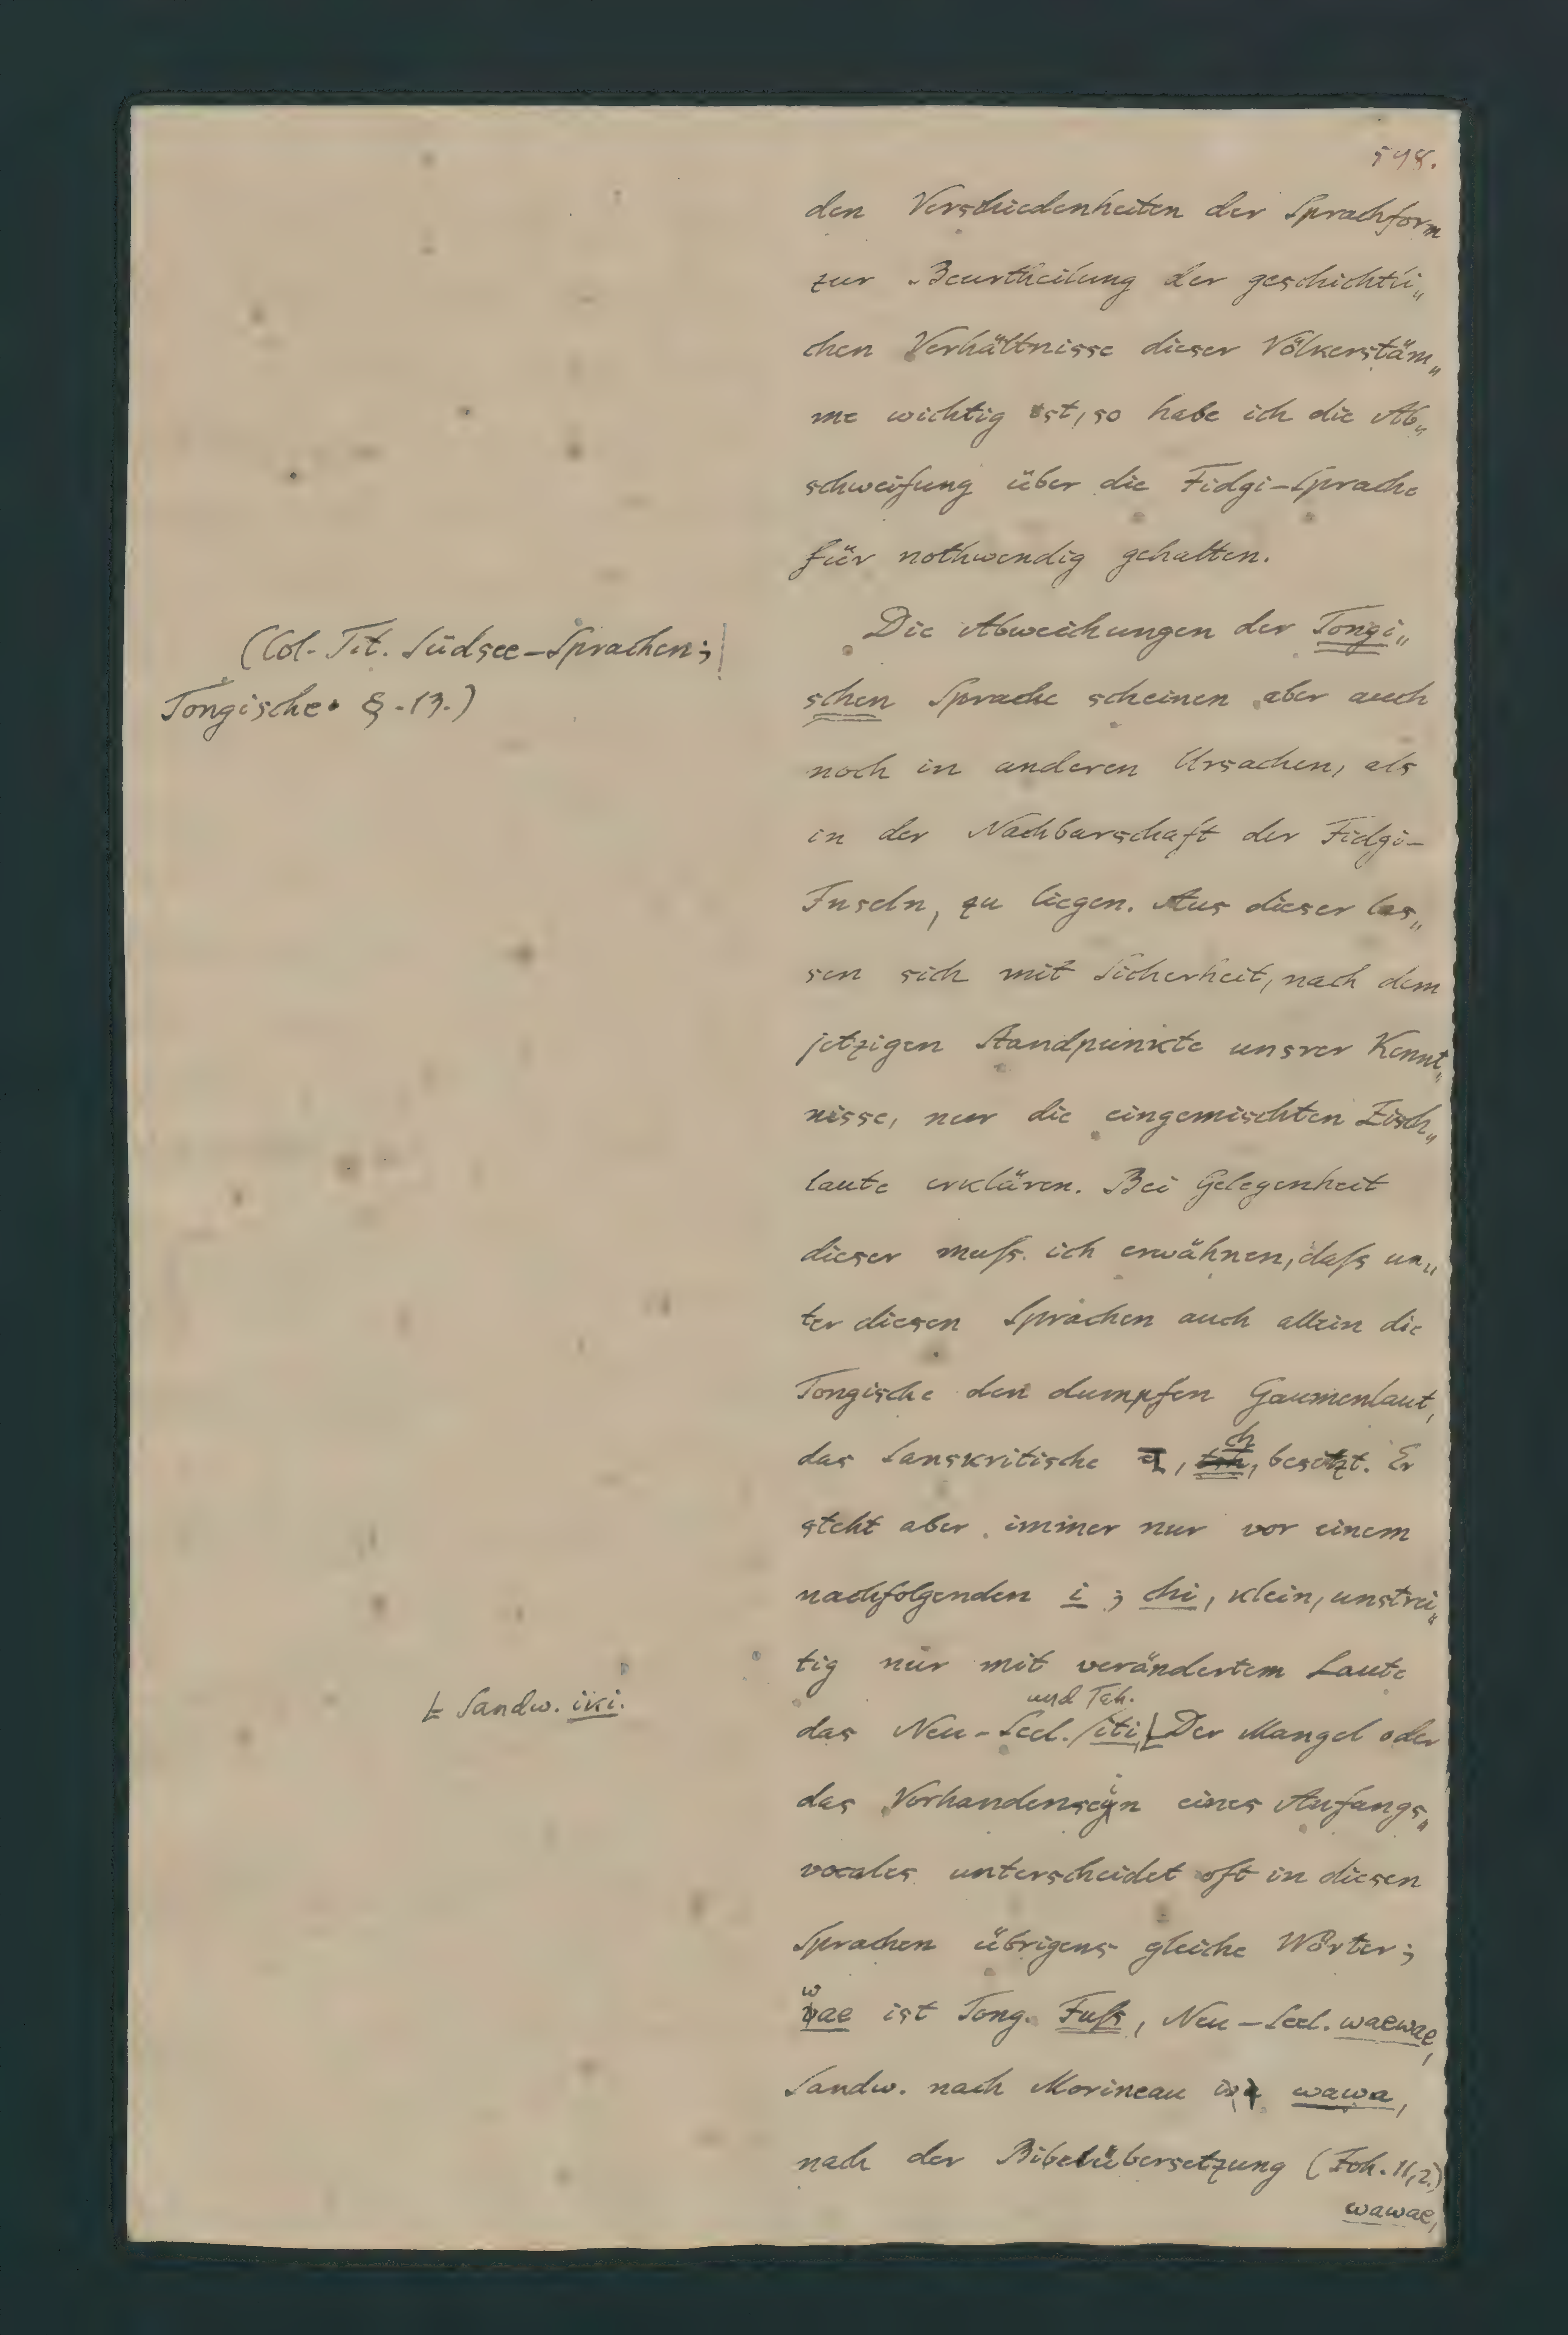 598.
den Verschiedenheiten der Sprachform
zur Beurtheilung der geschichtli„
chen Verhältnisse dieser Völkerstäm„
me wichtig ist, so habe ich die Ab„
schweifung über die Fidgi-Sprache
für nothwendig gehalten.
(Col. Tit. Südsee-Sprachen;
Tongische. §. 13.)
Die Abweichungen der Tongi„
schen Sprache scheinen aber auch
noch in anderen Ursachen, als
in der Nachbarschaft der Fidgi-
Inseln, zu liegen. Aus dieser las„
sen sich mit Sicherheit, nach dem
jetzigen Standpunkte unsrer Kennt„
nisse, nur die eingemischten Zisch„
laute erklären. Bei Gelegenheit
dieser muſs ich erwähnen, daſs un„
ter diesen Sprachen auch allein die
Tongische den dumpfen Gaumenlaut,
das Sanskritische च, ch, besitzt. Er
steht aber immer nur vor einem
nachfolgenden i; chi, klein, unstrei„
tig nur mit verändertem Laute
das Neu-Seel. und Tah. iti. Der Mangel oder
Sandw. iki.
das Vorhandensein eines Anfangs„
vocales unterscheidet oft in diesen
Sprachen übrigens gleiche Wörter;
wae ist Tong. Fuſs, Neu-Seel. waewae,
Sandw. nach Morineau wawa,
nach der Bibelübersetzung (Joh. 11, 2.)
wawae,